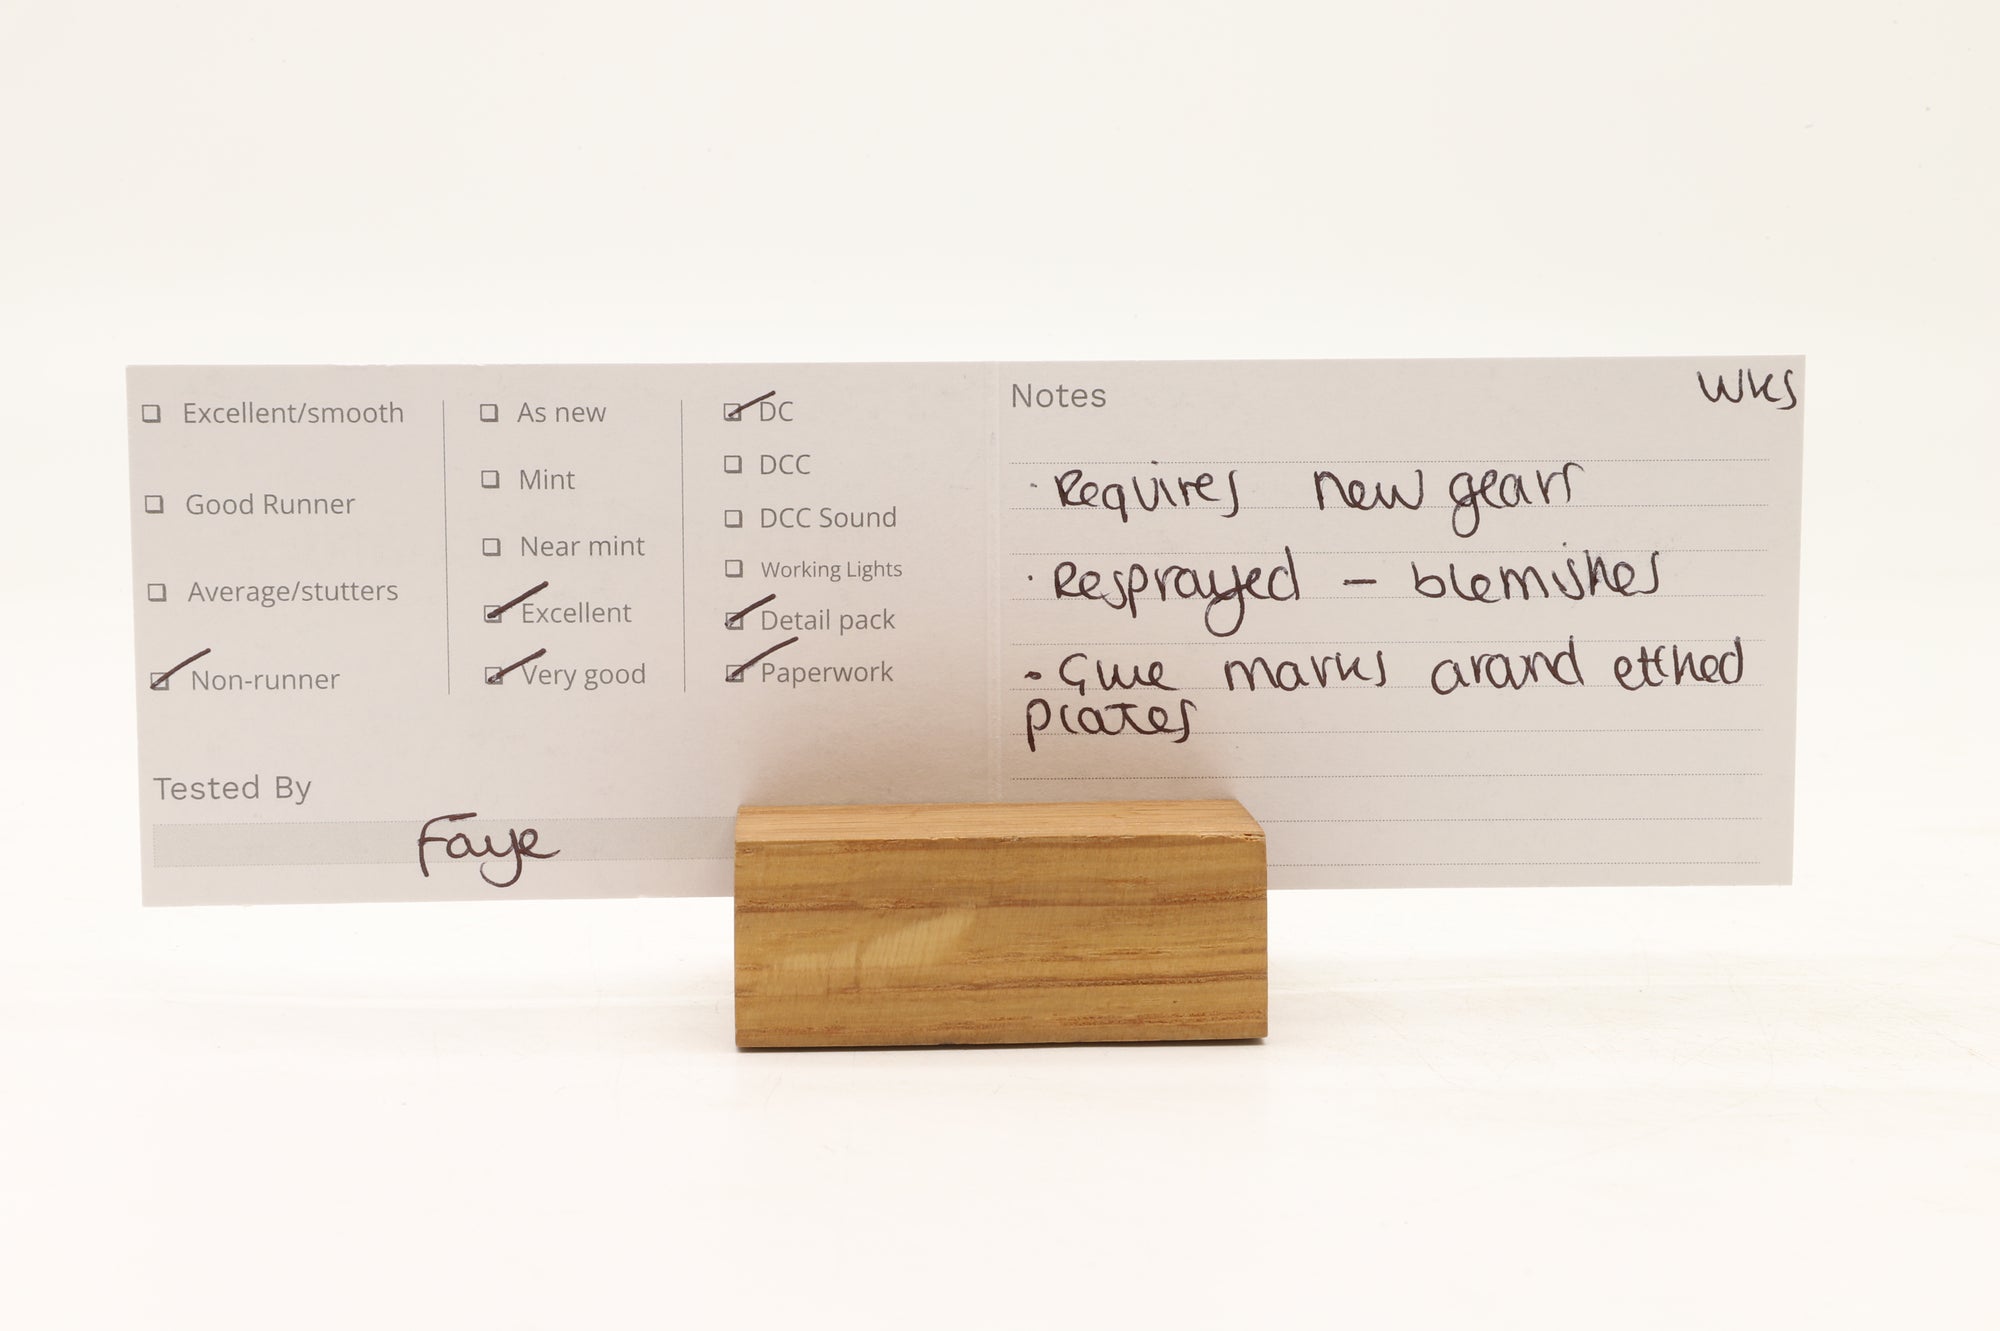 Excellent/smooth
Good Runner
Average/stutters
Non-runner
As new
Mint
Near mint
Excellent
Very good
DC
DCC
DCC Sound
Working Lights
Detail pack
Paperwork
Tested By
Faye
Notes
WKS
· Requires new gears
· Resprayed - blemishes
- Glue marks around etched
plates